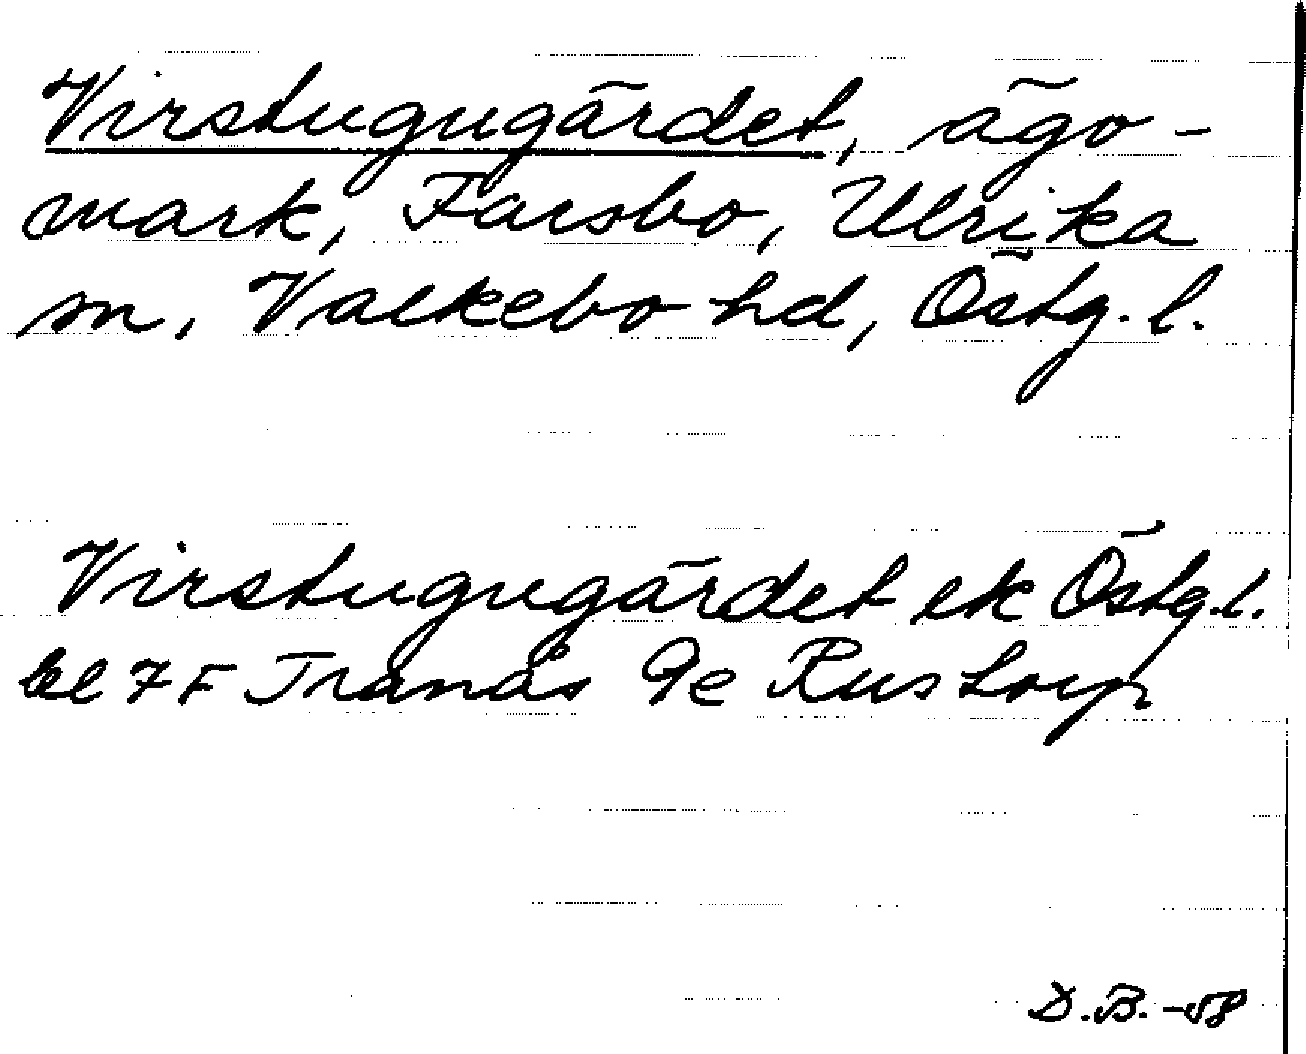 Virstugugärdet, ägo-
mark, Falsbo, Ulrika
sn, Valkebo hd, Östg. l.
Virstugugärdet ek Östg. l.
bl 7F Tranås 9e Rustorp
D.B. -58